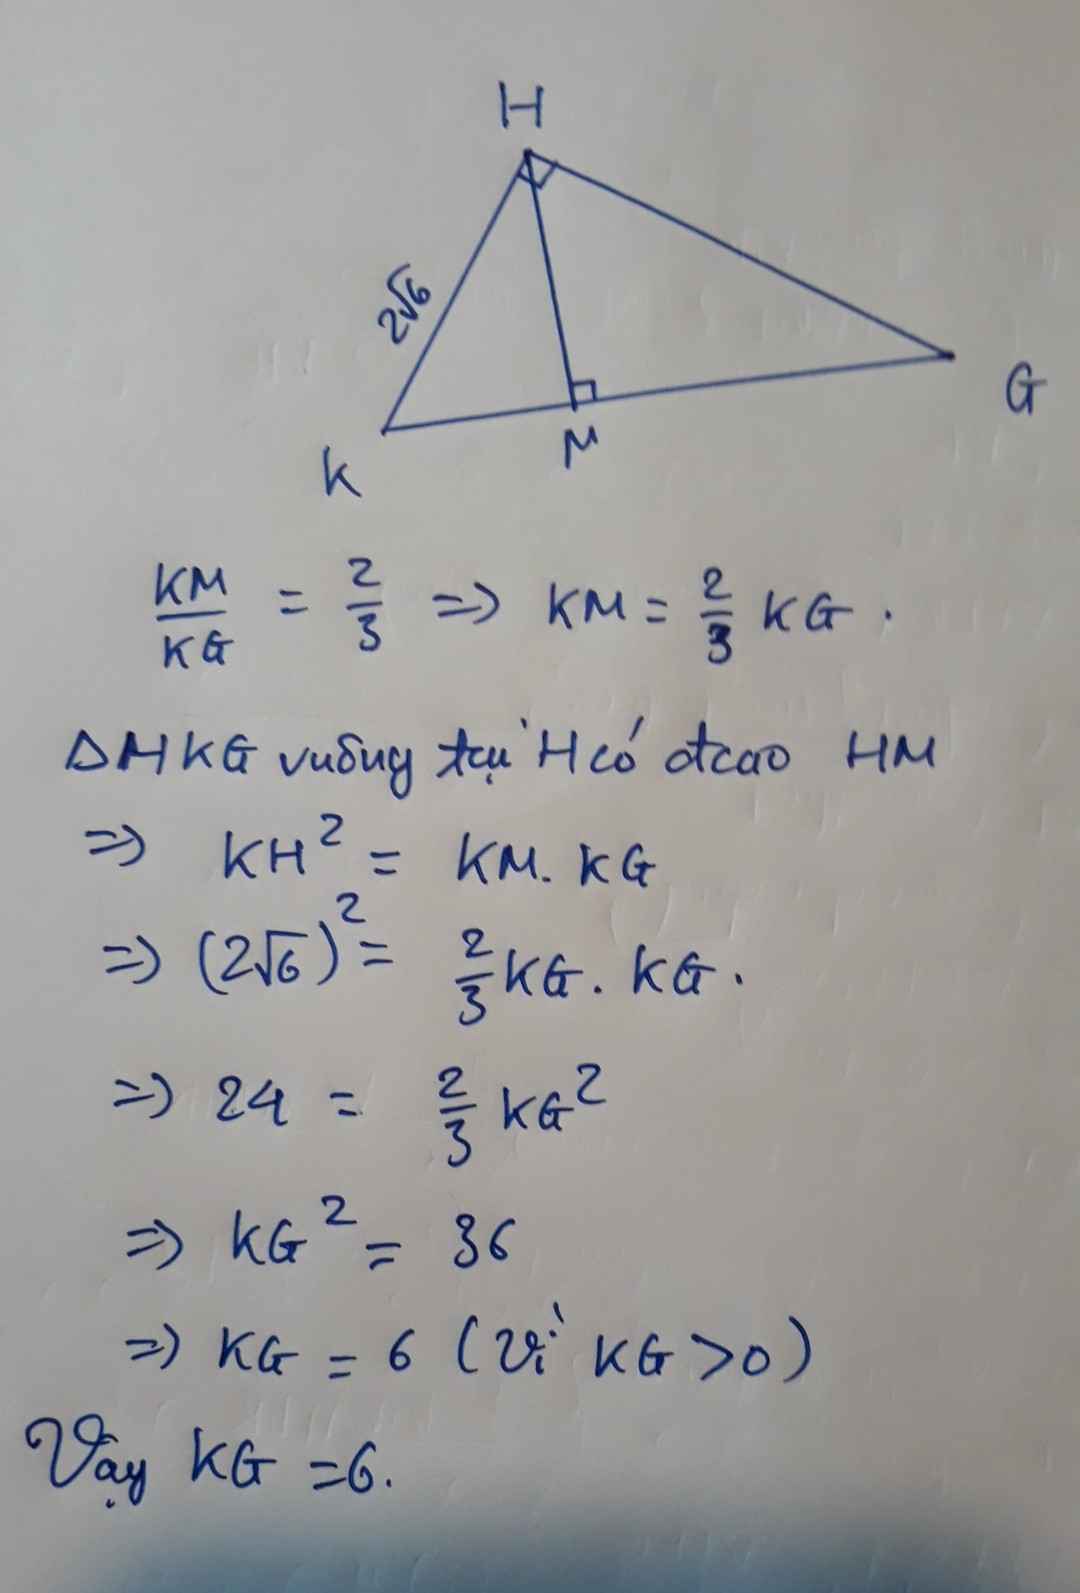 H
2√6
G
M
K
KM/KG = 2/3 => KM = 2/3 KG.
ΔHKG vuông tại H có đcao HM
=> KH² = KM. KG
=> (2√6)² = 2/3 KG. KG.
=> 24 = 2/3 KG²
=> KG² = 36
=> KG = 6 (vì KG > 0)
Vậy KG = 6.